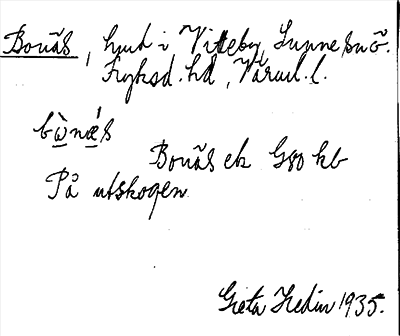 Bonäs, hmd i Viteby, Sunne sn ö.
Fryksd. hd, Värml. l.
bὼnæ̀s
Bonäs ek G80 kb
På utskogen
Greta Hedin 1935.